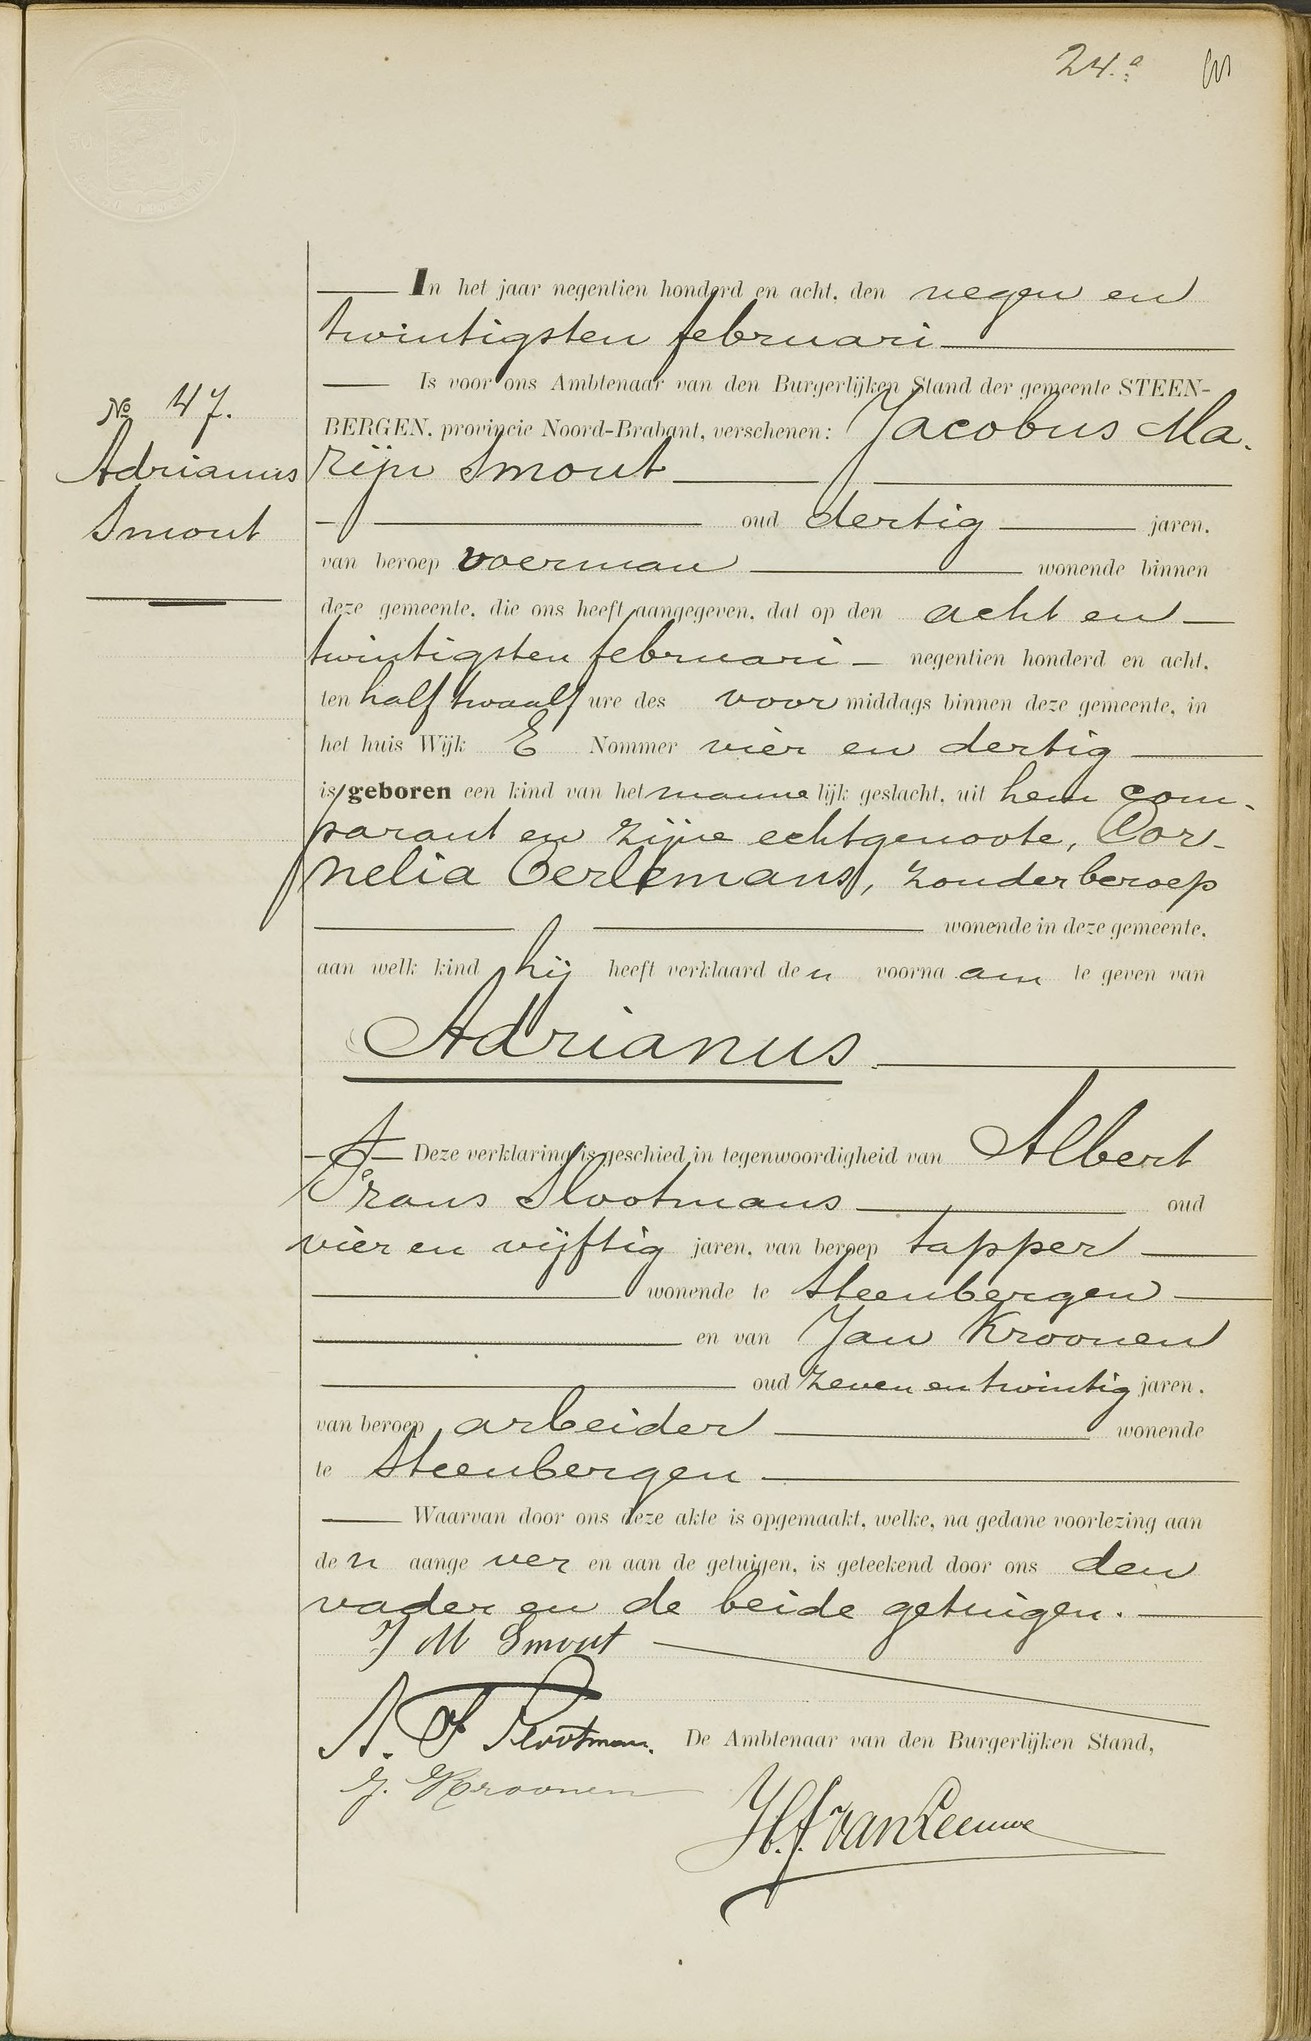 24.a
No 47.
Adrianus
Smout
In het jaar negentien honderd en acht, den negen en
twintigsten februari
Is voor ons Ambtenaar van den Burgerlijken Stand der gemeente STEEN-
BERGEN, provincie Noord-Brabant, verschenen: Jacobus Ma-
rijn Smout
oud dertig jaren,
van beroep voerman wonende binnen
deze gemeente, die ons heeft aangegeven, dat op den acht en
twintigsten februari negentien honderd en acht,
ten half twaalf ure des voor middags binnen deze gemeente, in
het huis Wijk E Nommer vier en dertig
is geboren een kind van het manne lijk geslacht, uit hem com-
parant en zijne echtgenoote, Cor-
nelia Oerlemans, zonder beroep
wonende in deze gemeente,
aan welk kind hij heeft verklaard de n voorna am te geven van
Adrianus
Deze verklaring is geschied in tegenwoordigheid van Albert
Frans Slootmans oud
vier en vijftig jaren, van beroep tapper
wonende te Steenbergen
en van Jan Kroonen
oud zeven en twintig jaren,
van beroep arbeider wonende
te Steenbergen
Waarvan door ons deze akte is opgemaakt, welke, na gedane voorlezing aan
de n aange ver en aan de getuigen, is geteekend door ons den
vader en de beide getuigen.
J M Smout
A. F Slootmans.
De Ambtenaar van den Burgerlijken Stand,
J. Kroonen
H. J. van Leeuwe